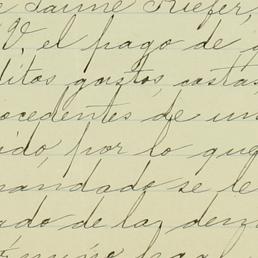 Jaime Kiefer,
V, el pago de
ditos gastos, costas,
ocedentes de un
ido, por lo que
mandado se le
ado de las